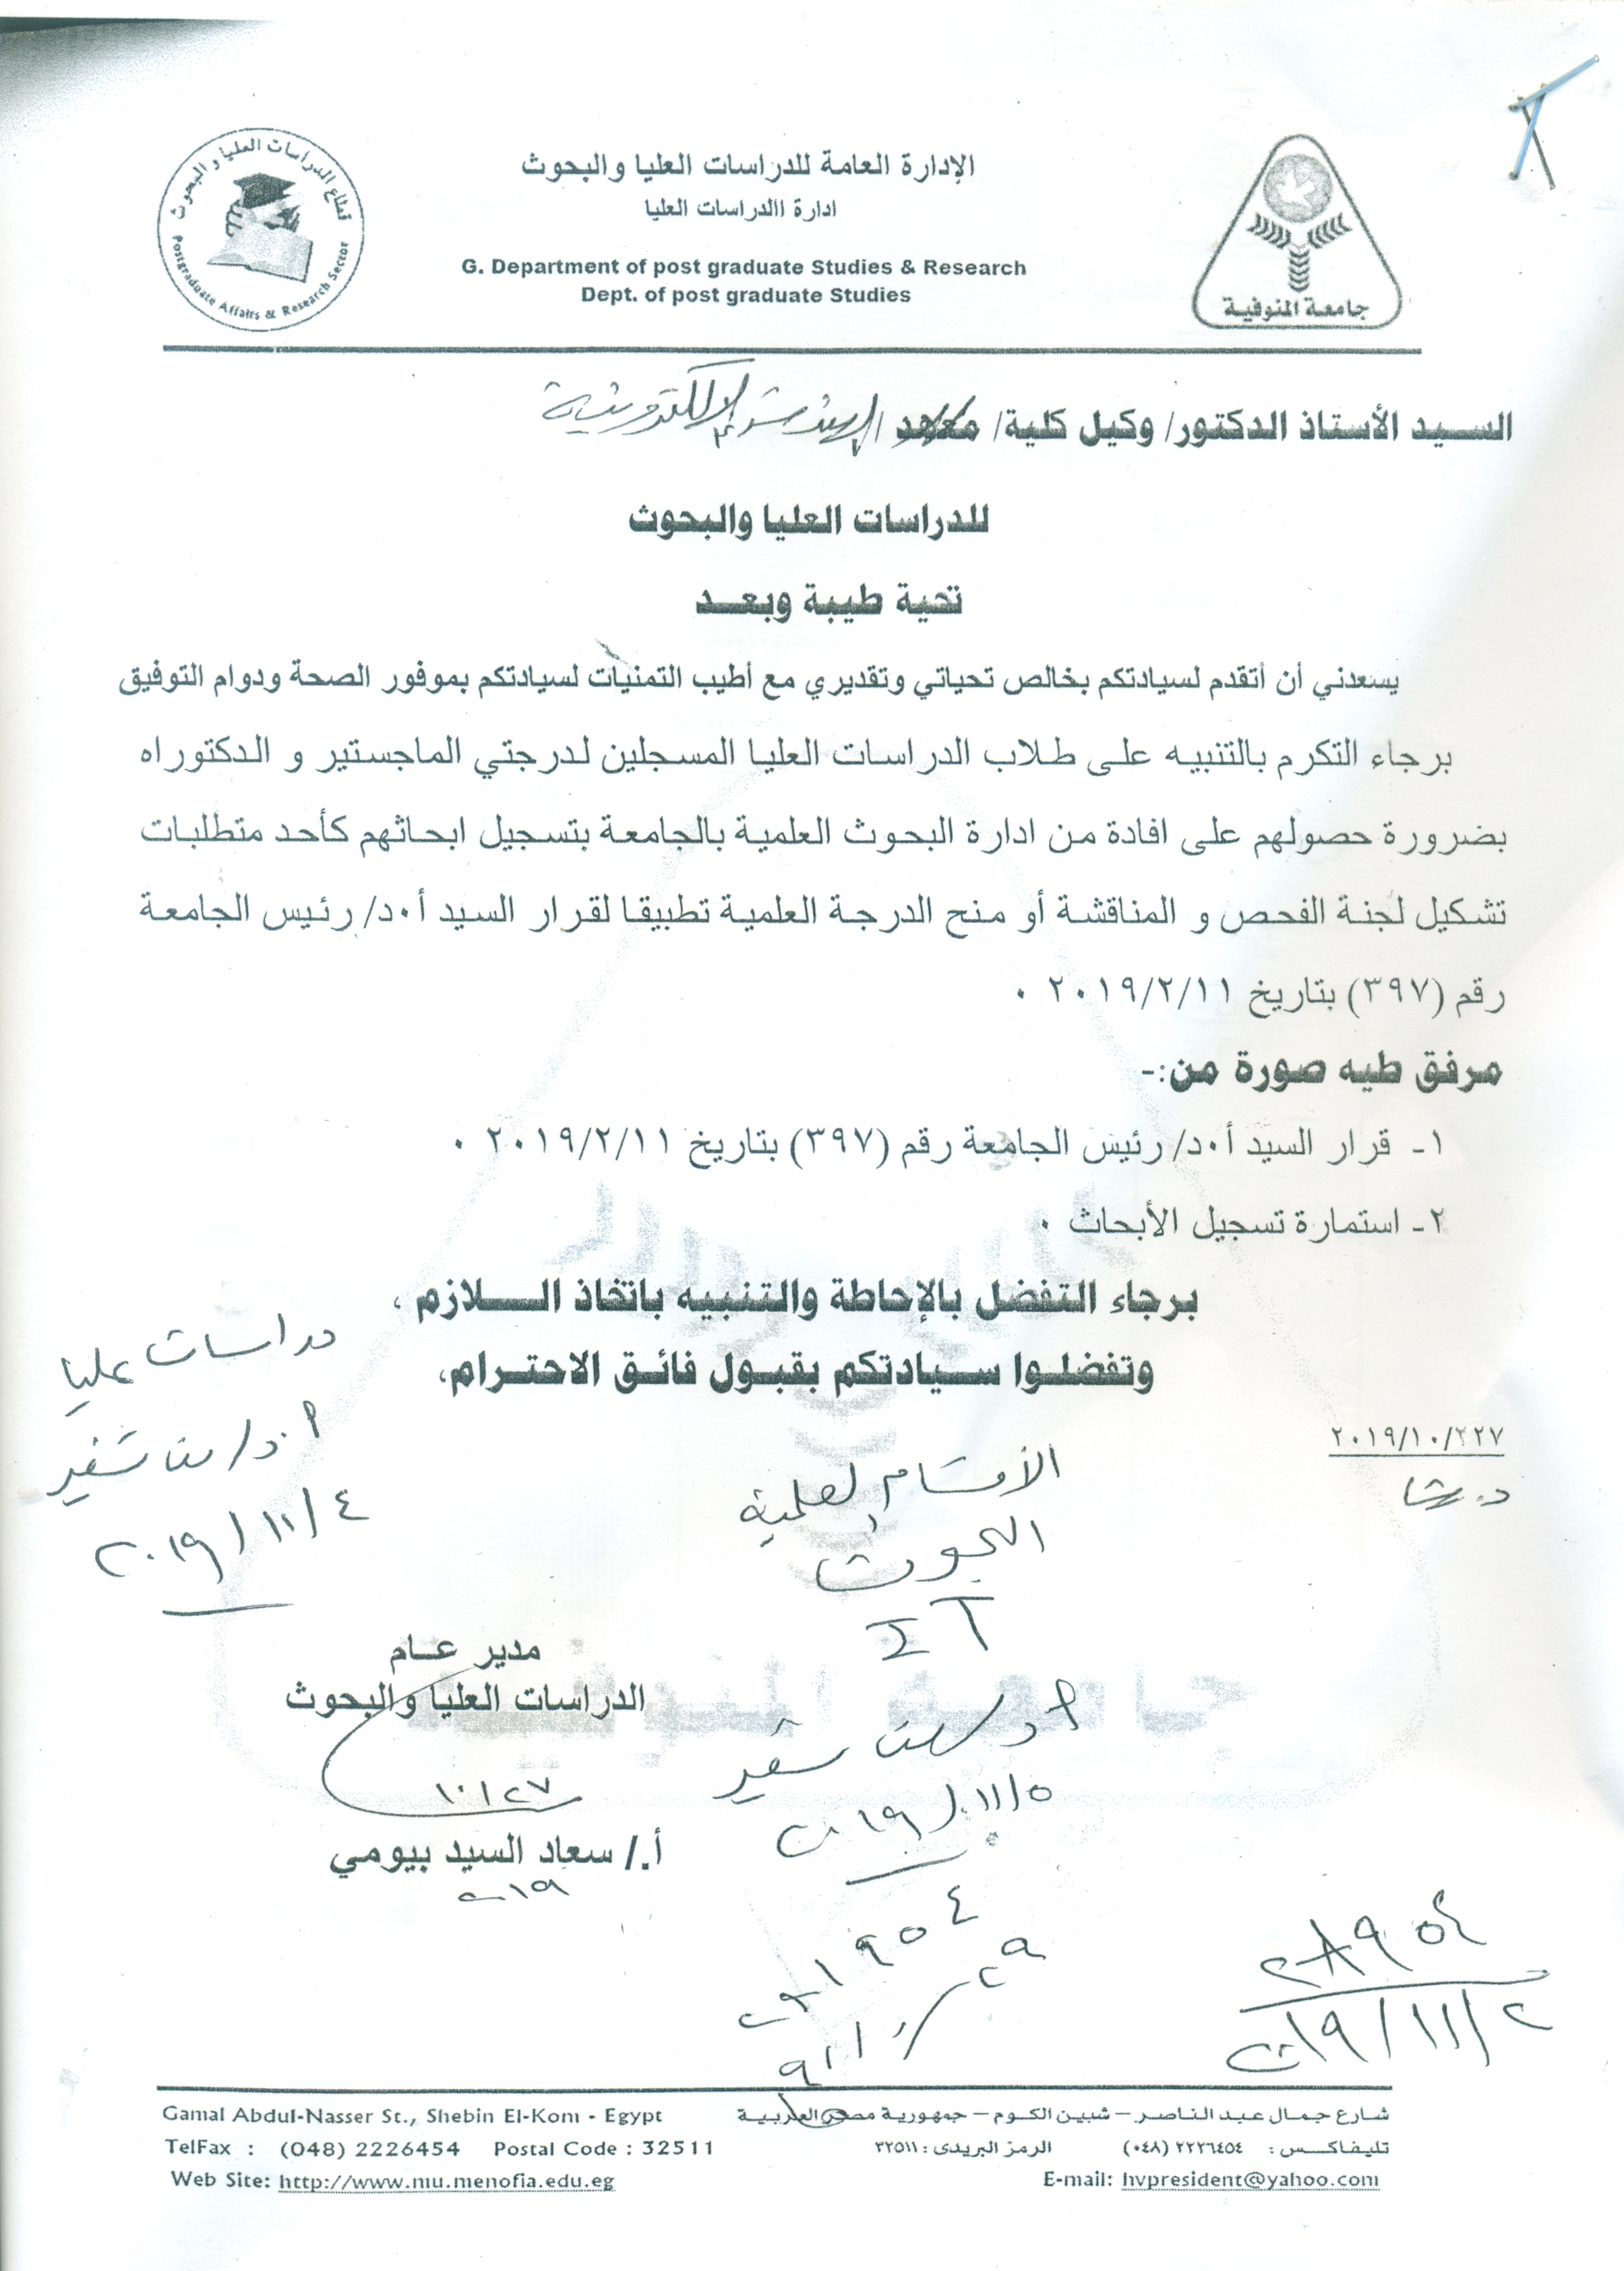 قطاع الدراسات العليا و البحوث
Postgraduate Affairs & Research Sector
الإدارة العامة للدراسات العليا والبحوث
ادارة االدراسات العليا
G. Department of post graduate Studies & Research
Dept. of post graduate Studies
جامعة المنوفية
السيد الأستاذ الدكتور/ وكيل كلية/ معهد / الهندسة الإلكترونية
للدراسات العليا والبحوث
تحية طيبة وبعد
يسعدني أن أتقدم لسيادتكم بخالص تحياتي وتقديري مع أطيب التمنيات لسيادتكم بموفور الصحة ودوام التوفيق
برجاء التكرم بالتنبيه على طلاب الدراسات العليا المسجلين لدرجتي الماجستير و الدكتوراه
بضرورة حصولهم على افادة من ادارة البحوث العلمية بالجامعة بتسجيل ابحاثهم كأحد متطلبات
تشكيل لجنة الفحص و المناقشة أو منح الدرجة العلمية تطبيقا لقرار السيد أ٠د/ رئيس الجامعة
رقم (٣٩٧) بتاريخ ٢٠١٩/٢/١١ ٠
مرفق طيه صورة من:-
١- قرار السيد أ٠د/ رئيس الجامعة رقم (٣٩٧) بتاريخ ٢٠١٩/٢/١١ ٠
٢- استمارة تسجيل الأبحاث ٠
برجاء التفضل بالإحاطة والتنبيه باتخاذ الـلازم ،
وتفضلوا سيادتكم بقبول فائق الاحترام،
دراسات عليا
٢٠١٩/١١/٤
٢٠١٩/١٠/٢٢٧
الأقسام العلمية
البحوث
مدير عام
الدراسات العليا والبحوث
١٠/٢٧
٢٠١٩/١١/٥
أ./ سعاد السيد بيومي
٢٠١٩
٢٨٩٥٤
٢٠١٩/١١/٢
Gamal Abdul-Nasser St., Shebin El-Kom - Egypt
شارع جمال عبد الناصر – شبين الكوم – جمهورية مصر العربية
TelFax : (048) 2226454 Postal Code : 32511
تليفاكس : ٢٢٢٦٤٥٤ (٠٤٨) الرمز البريدى : ٣٢٥١١
Web Site: http://www.mu.menofia.edu.eg
E-mail: hvpresident@yahoo.com